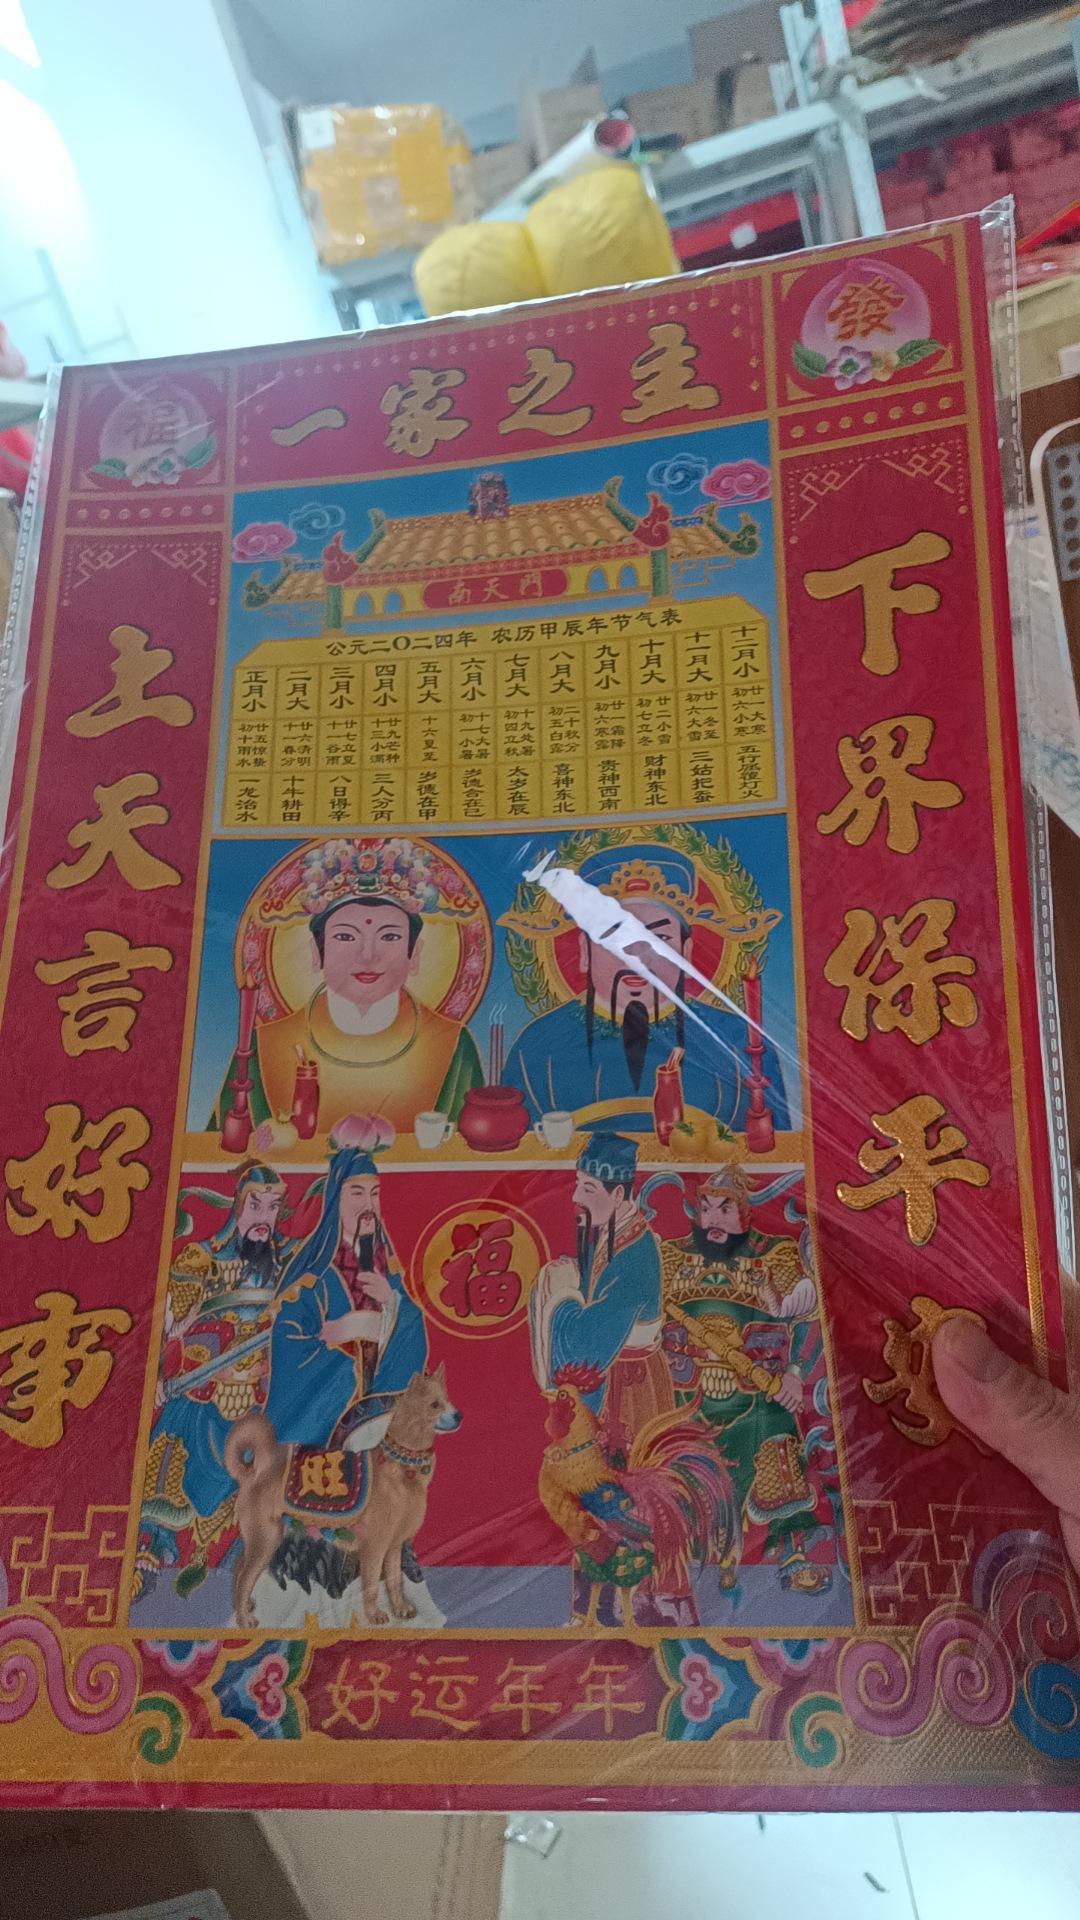 福
發
一家之主
上天言好事
下界保平
南天門
公元二〇二四年 农历甲辰年节气表
正月小 二月大 三月小 四月小 五月大 六月小 七月大 八月大 九月小 十月大 十一月大 十二月小
初十雨水 廿五惊蛰
十一春分 廿六清明
十一谷雨 廿七立夏
十三小满 廿九芒种
十六夏至
初一小暑 十七大暑
初四立秋 十九处暑
初五白露 二十秋分
初六寒露 廿一霜降
初七立冬 廿二小雪
初六大雪 廿一冬至
初六小寒 廿一大寒
一龙治水 十牛耕田 八日得辛 三人分丙 岁德在甲 岁德合在己 太岁在辰 喜神东北 贵神西南 财神东北 三姑把蚕 五行屈覆灯火
福
旺
好运年年